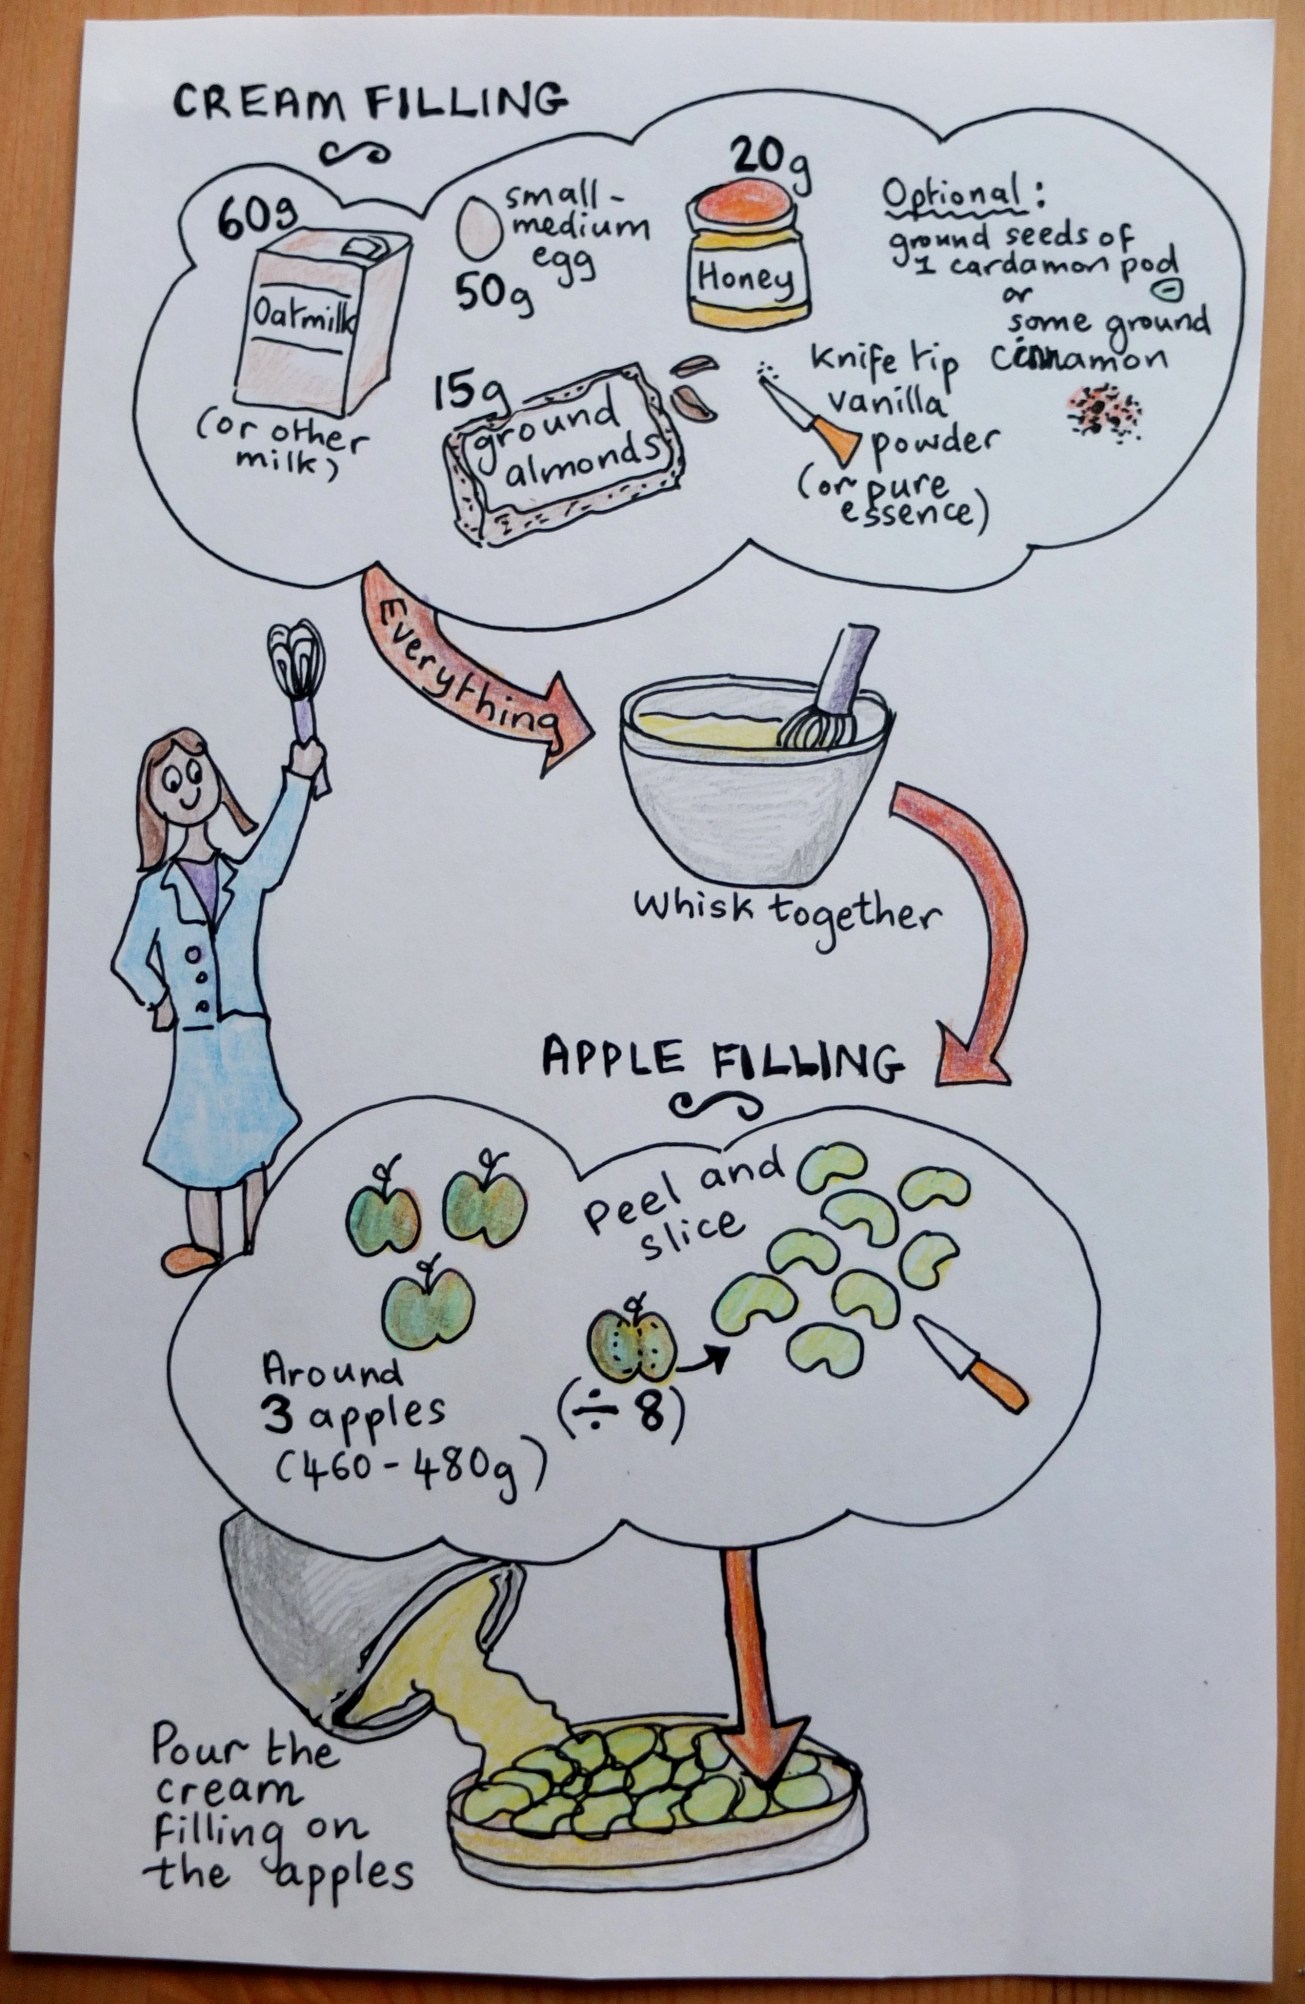 CREAM FILLING
60g
Oatmilk
(or other
milk)
small-
medium
egg
50g
20g
Honey
Optional:
ground seeds of
1 cardamon pod
or
some ground
cinnamon
15g
ground
almonds
Knife tip
vanilla
powder
(or pure
essence)
Everything
Whisk together
APPLE FILLING
Around
3 apples
(460-480g)
Peel and
slice
(÷8)
Pour the
cream
filling on
the apples